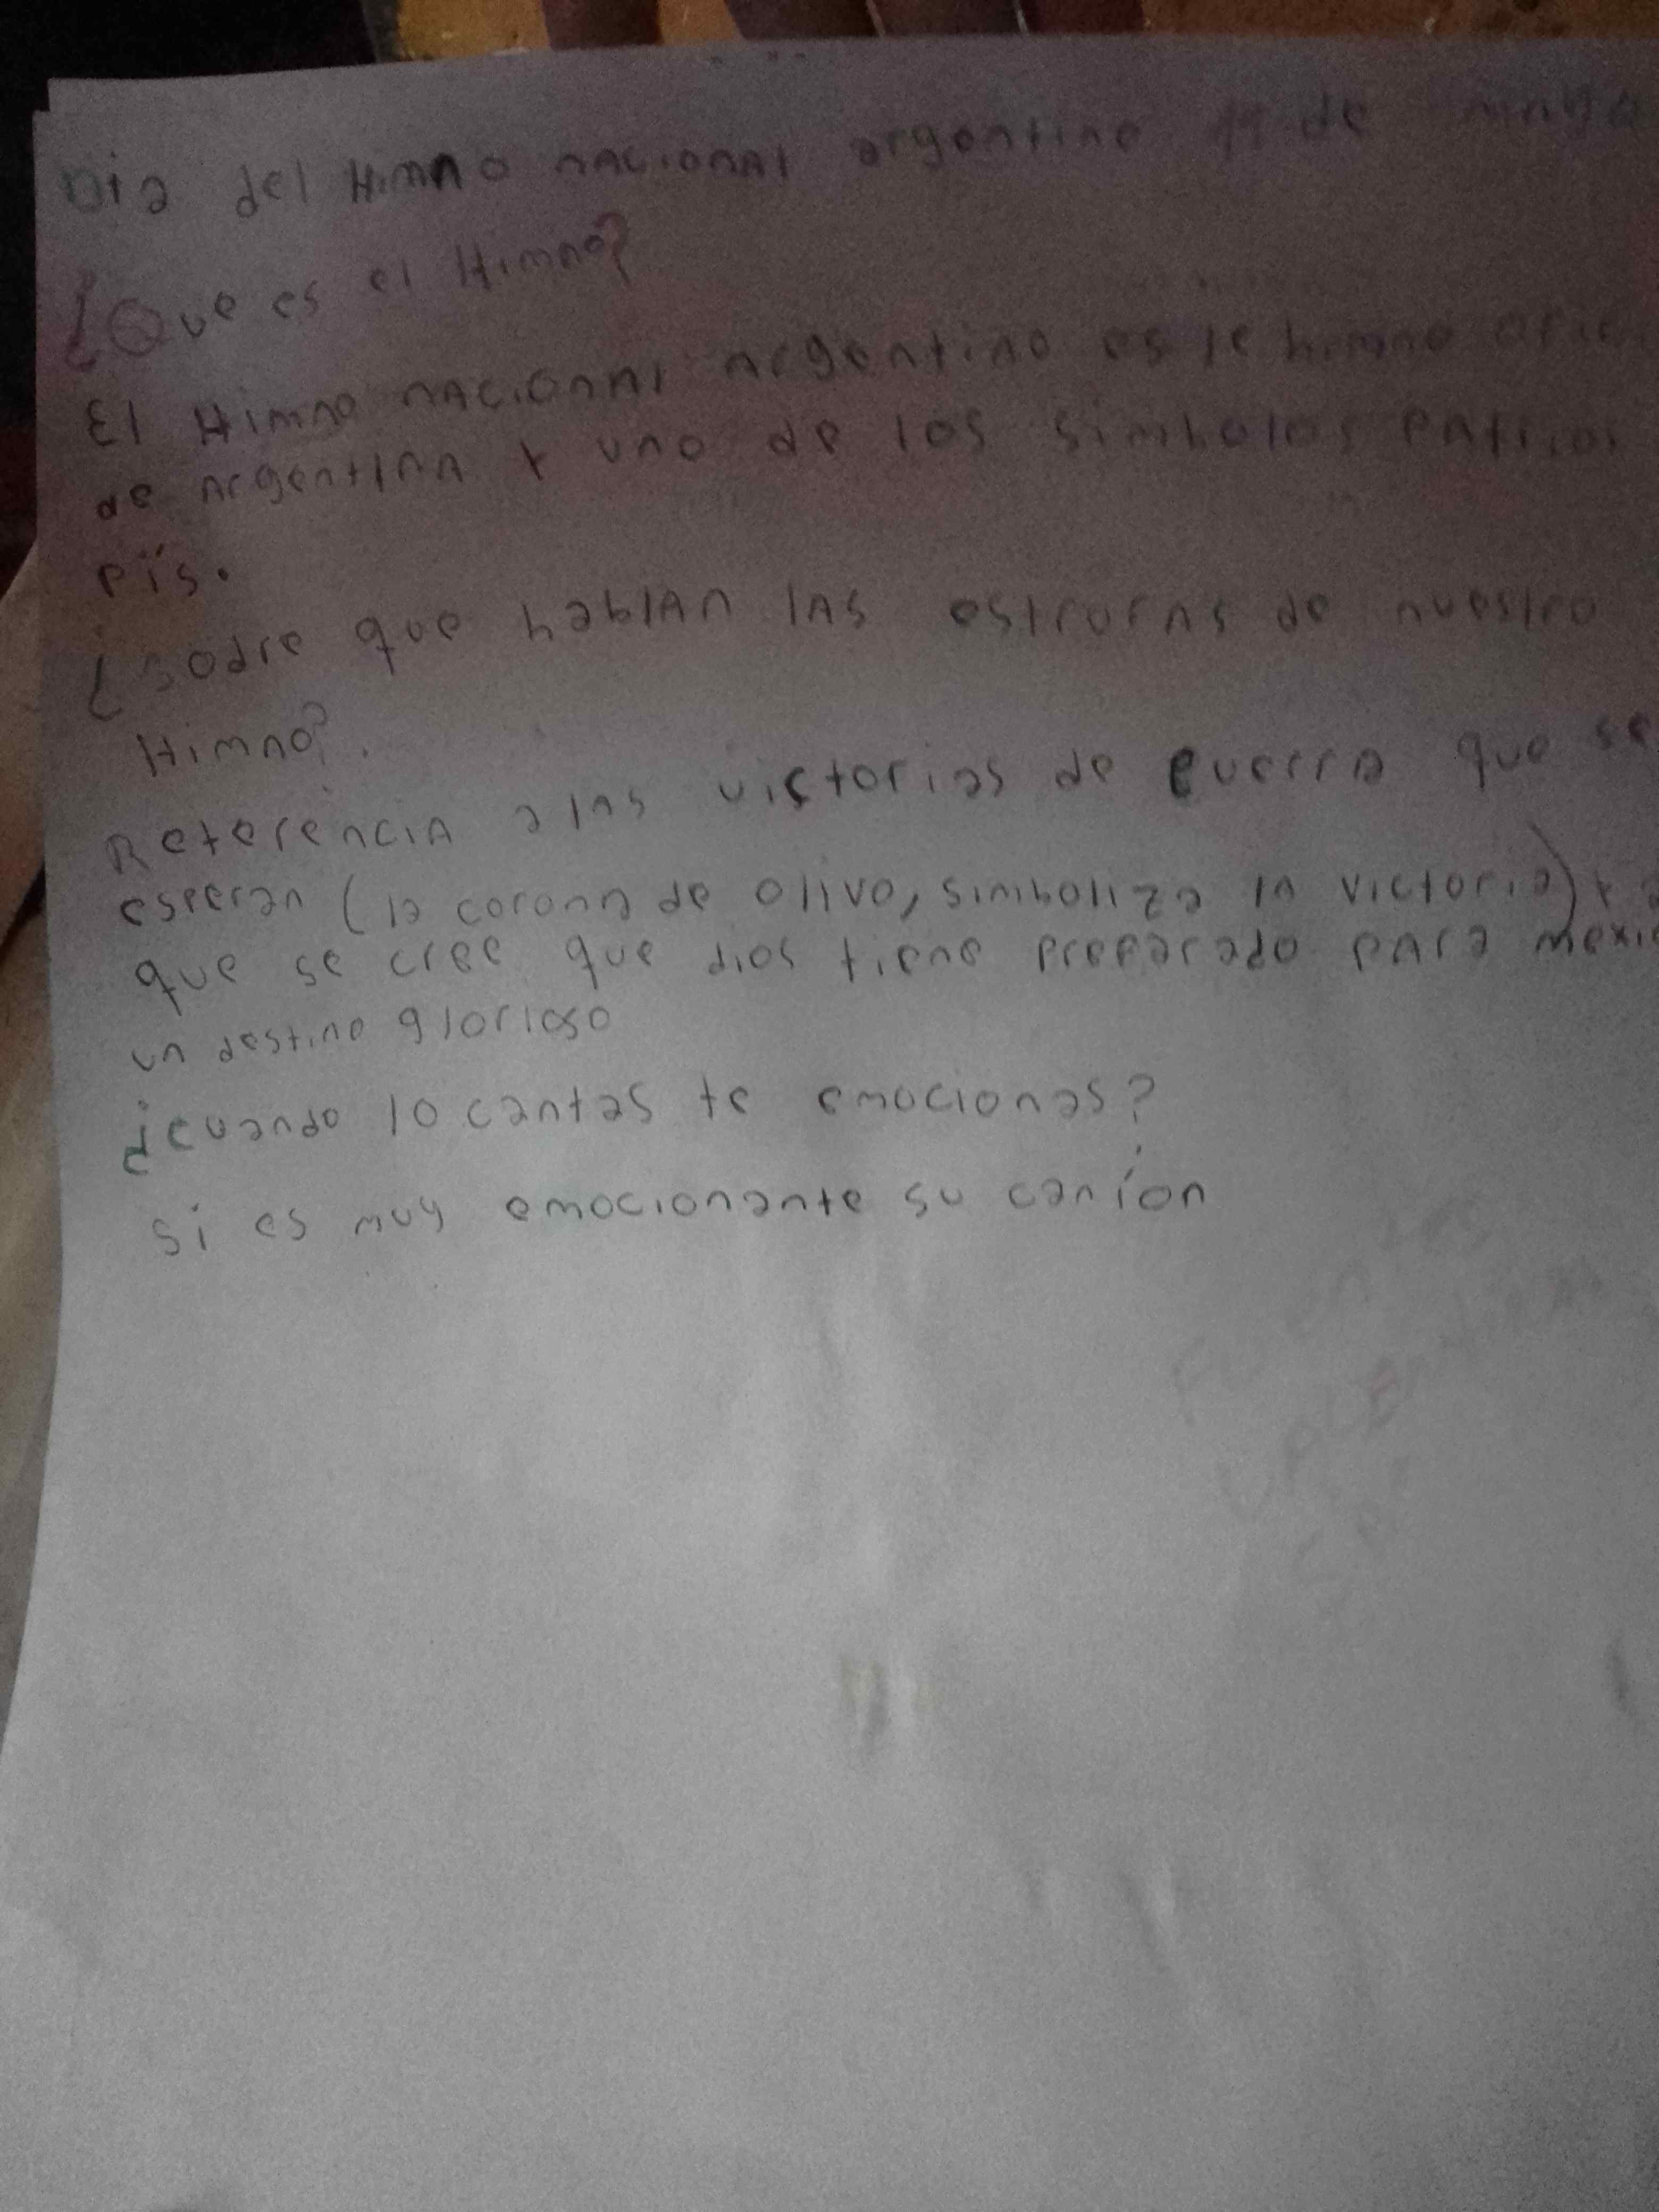 Dia del Himno nacional argentino 11 de mayo
¿Que es el Himno?
El Himno nacional argentino es le himno ofici
de argentina y uno de los simbolos patrios
pís.
¿sodre que hablan las estrofas de nuestro
Himno?.
Referencia a las victorias de guerra que se
esperan (la corona de olivo, simboliza la victoria) y a
que se cree que dios tiene preparado para mexic
un destino glorioso
¿cuando lo cantas te emocionas?
si es muy emocionante su caníon